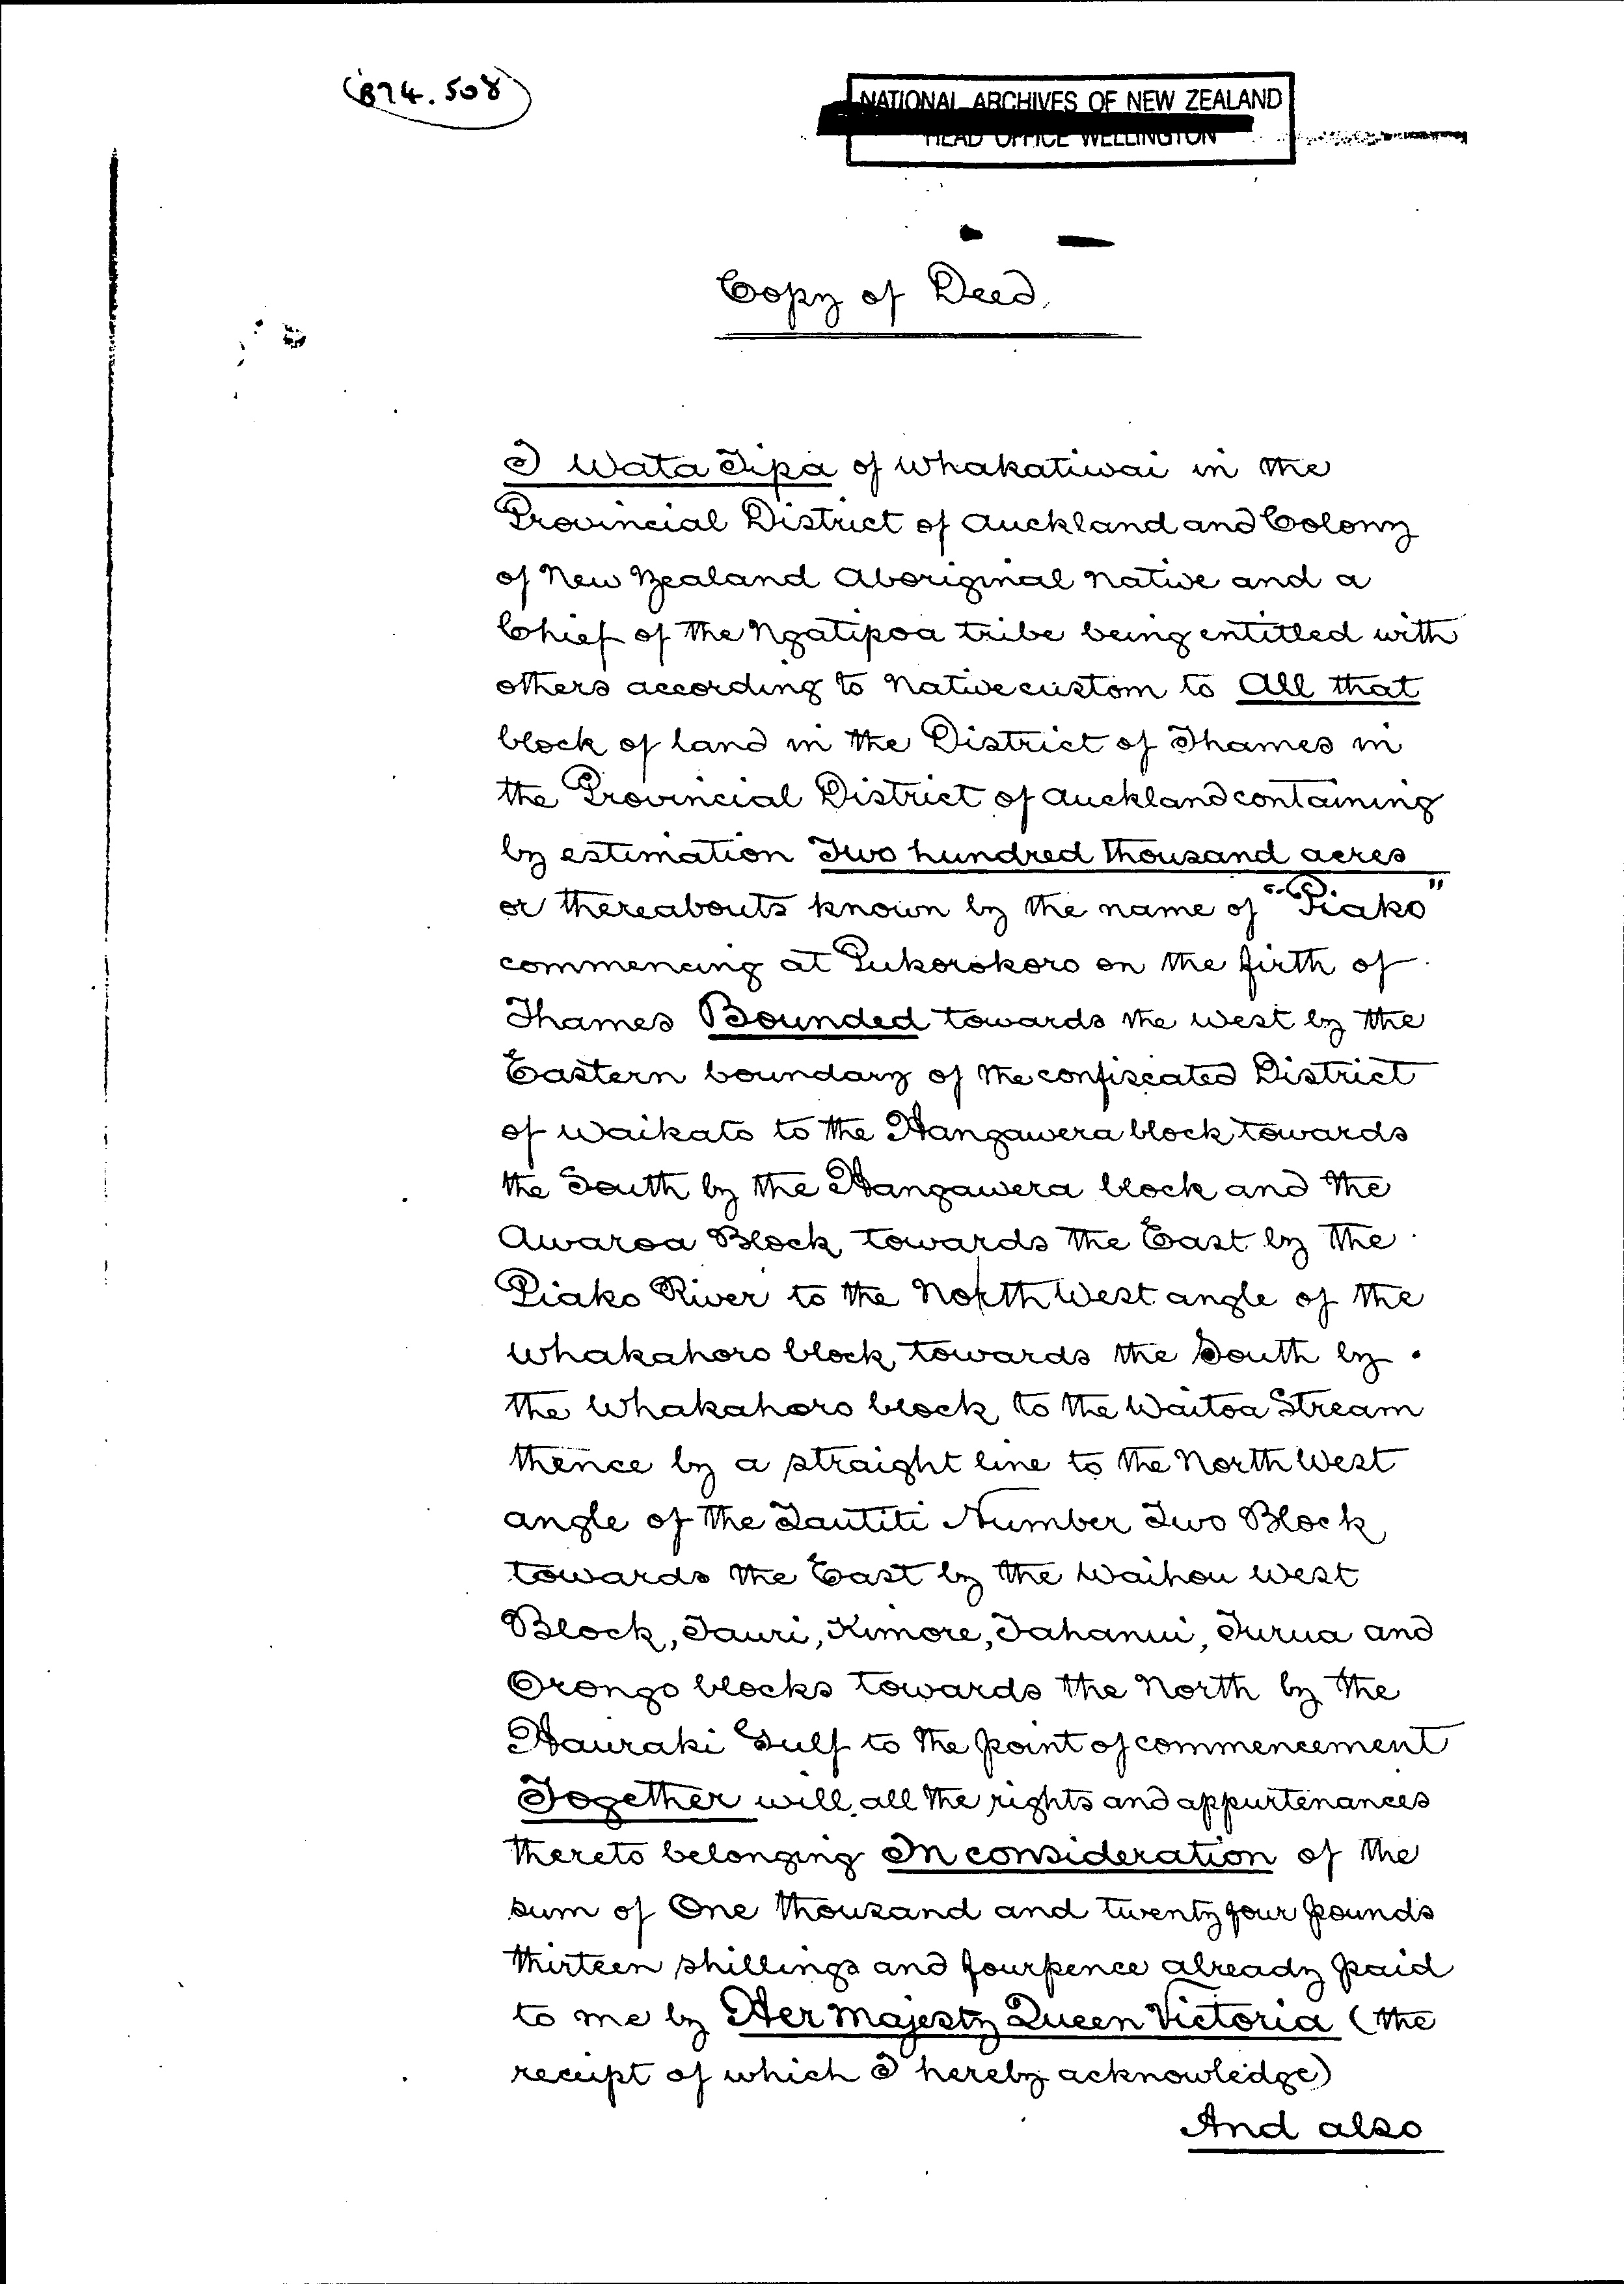 (B74.508)
NATIONAL ARCHIVES OF NEW ZEALAND
HEAD OFFICE WELLINGTON
Copy of Deed.
I Wata Tipa of Whakatiwai in the
Provincial District of Auckland and Colony
of New Zealand Aboriginal Native and a
Chief of the Ngatipoa tribe being entitled with
others according to Native custom to All that
block of land in the District of Thames in
the Provincial District of Auckland containing
by estimation Two hundred thousand acres
or thereabouts known by the name of "Piako"
commencing at Pukorokoro on the firth of
Thames Bounded towards the west by the
Eastern boundary of the confiscated District
of Waikato to the Hangawera block towards
the South by the Hangawera block and the
Awaroa Block towards the East by the
Piako River to the North West angle of the
Whakahoro block towards the South by
the Whakahoro block to the Waitoa Stream
thence by a straight line to the North West
angle of the Tautiti Number Two Block
towards the East by the Waihou West
Block, Tauri, Kimore, Tahanui, Turua and
Orongo blocks towards the North by the
Hauraki Gulf to the point of commencement
Together will all the rights and appurtenances
thereto belonging In consideration of the
sum of One thousand and twenty four pounds
thirteen shillings and fourpence already paid
to me by Her Majesty Queen Victoria (the
receipt of which I hereby acknowledge)
And also